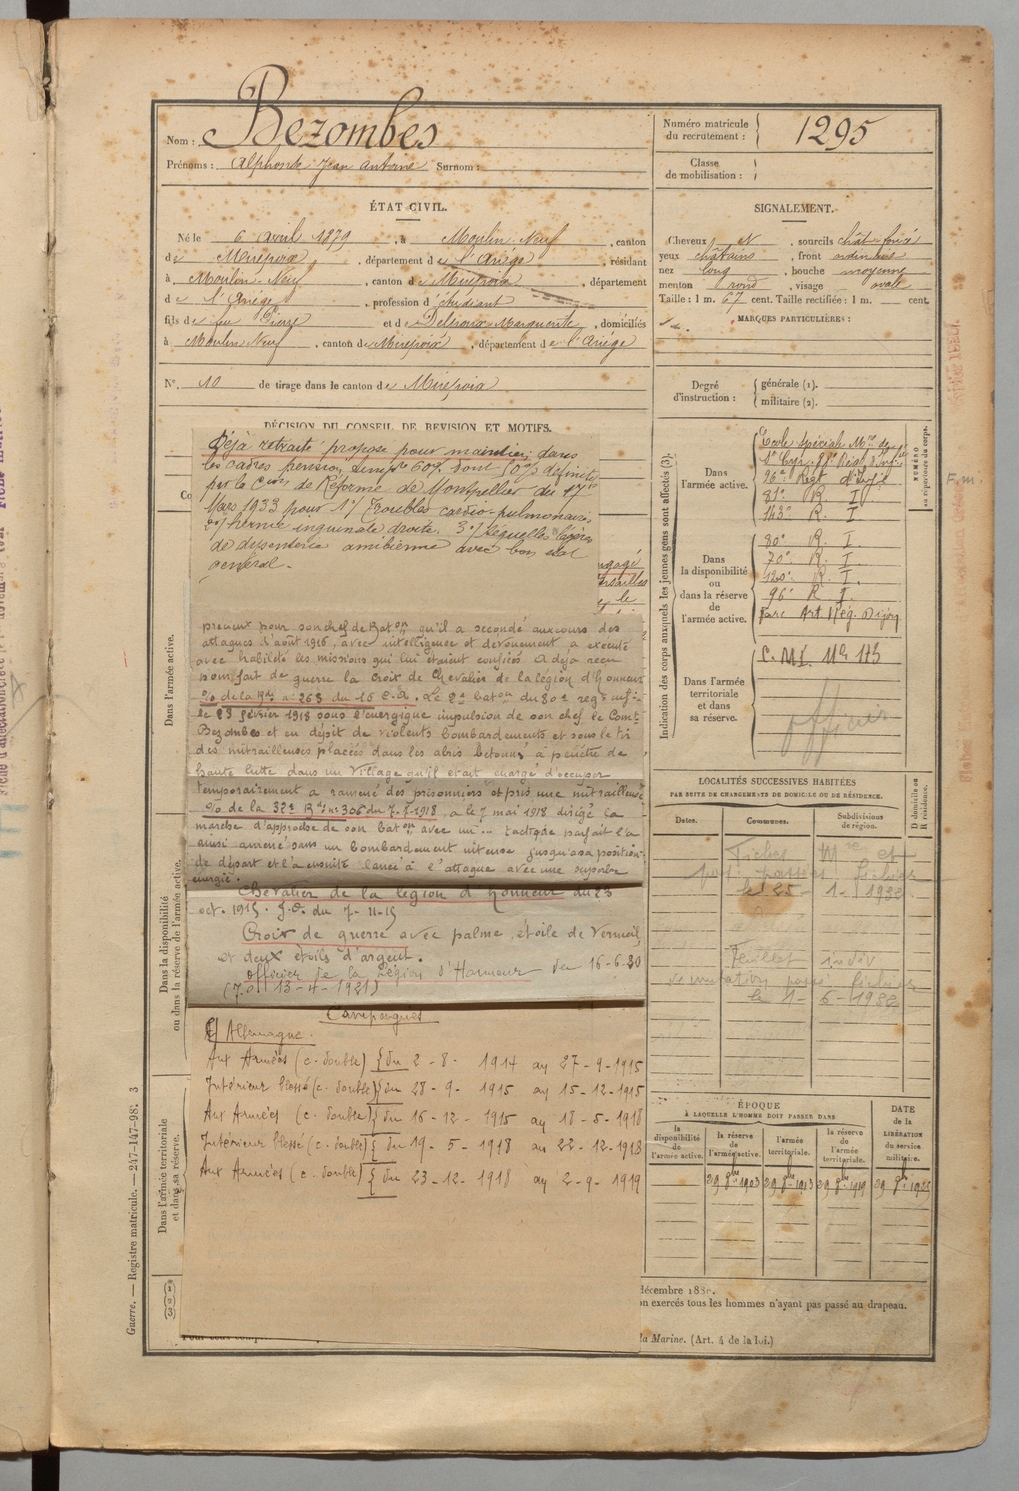 Nom : Bezombes
Prénoms : Alphonse Jean Antoine Surnom :
Numéro matricule
du recrutement : 1295
Classe
de mobilisation :
ÉTAT CIVIL.
Né le 6 avril 1879, à Moulin-Neuf, canton
de Mirepoix, département de l'Ariège, résidant
à Moulin-Neuf, canton de Mirepoix, département
de l'Ariège, profession d'étudiant
fils de feu Pierre et de Marguerite, domiciliés
à Moulin Neuf, canton de Mirepoix, département de l'Ariège
N° 10 de tirage dans le canton de Mirepoix
SIGNALEMENT.
Cheveux et, sourcils chât-foncé
yeux châtains, front ordinaire
nez long, bouche moyenne
menton rond, visage ovale
Taille : 1 m. 67 cent. Taille rectifiée : 1 m. cent.
MARQUES PARTICULIÈRES :
Degré
d'instruction :
générale (1).
militaire (2).
DÉCISION DU CONSEIL DE REVISION ET MOTIFS.
Déjà retraité proposé pour maintien dans
les cadres pension 60% dont 10% définitif
par la Cion de Réforme de Montpellier du 17
Mars 1933 pour 1°/ Troubles cardio-pulmonaires
2°/ hernie inguinale droite. 3°/ Séquelles légères
de dysenterie amibienne avec bon etat
général.
engagé
Versailles
le
présent pour son chef de Baton qu'il a secondé au cours des
attaques d'août 1916, avec intelligence et dévouement a exécuté
avec habileté les missions qui lui étaient confiées. A déjà reçu
pour fait de guerre la Croix de Chevalier de la légion d'honneur
% de la Don n° 268 du 16 C.A. Le 2e baton du 80e reg inf-
le 23 février 1918 sous l'énergique impulsion de son chef le Comt
Bezombes et en dépit de violents bombardements et sous le tir
des mitrailleuses placées dans les abris bétonnés a pénétré de
haute lutte dans un village qu'il était chargé d'occuper
temporairement a ramené des prisonniers et pris une mitrailleuse
% de la 32e n° 306 du 7-7-1918, a le 7 mai 1918 dirigé la
marche d'approche de son baton avec un... parfait l'a
ainsi amené sans un bombardement intense jusqu'à sa position
de départ et l'a ensuite lancé à l'attaque avec une superbe
énergie.
Chevalier de la légion d'honneur du 23
oct. 1915. J.O. du 7-11-15
Croix de guerre avec palme, étoile de Vermeil
et deux étoiles d'argent.
Officier de la Légion d'Honneur du 16-6-20
(J.O. 13-4-1921)
Campagnes
Allemagne.
Aux Armées (c. double) du 2-8-1914 au 27-9-1915
Intérieur blessé (c. double) du 28-9-1915 au 15-12-1915
Aux Armées (c. double) du 16-12-1915 au 18-5-1918
Intérieur blessé (c. double) du 19-5-1918 au 22-12-1918
Aux Armées (c. double) du 23-12-1918 au 2-9-1919
Indication des corps auxquels les jeunes gens sont affectés (3).
NUMÉRO
au répertoire du corps.
Dans
l'armée active.
École Spéciale Mre de
St Cyr.
96e Régt d'Infie
81e R. I
143e R. I
Dans
la disponibilité
ou
dans la réserve
de
l'armée active.
80e R. I.
70e R. I.
120e R. I.
96e R I.
Parc Art. Rég. Dijon
Dans l'armée
territoriale
et dans
sa réserve.
C. M. I. 173
officier
LOCALITÉS SUCCESSIVES HABITÉES
PAR SUITE DE CHANGEMENTS DE DOMICILE OU DE RÉSIDENCE.
Dates.
Communes.
Subdivisions
de région.
D domicile ou
R résidence.
Fiches Mre et
passées fichier
le 25-1-1932
Feuillet indiv
de mutation passé fichier
le 1-6-1932
ÉPOQUE
À LAQUELLE L'HOMME DOIT PASSER DANS
la
disponibilité
de
l'armée active.
la réserve
de
l'armée active.
l'armée
territoriale.
la réserve
de
l'armée
territoriale.
DATE
de la
LIBÉRATION
du service
militaire.
29 8bre 1903 29 8bre 1913 29 8bre 1919 29 8bre 1925
Dans l'armée active.
Dans la disponibilité
ou dans la réserve de l'armée active.
Dans l'armée territoriale
et dans sa réserve.
Guerre. — Registre matricule. — 247-147-98. 3
(1)
(2)
(3)
décembre 1889.
on exercés tous les hommes n'ayant pas passé au drapeau.
la Marine. (Art. 4 de la loi.)
F.m.